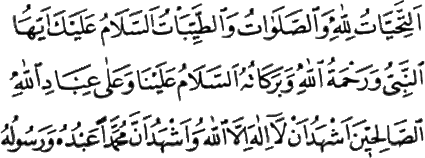 اَلتَّحِيَّاتُ لِلّٰهِ وَالصَّلَوَاتُ وَالطَّيِّبَاتُ اَلسَّلَامُ عَلَيْكَ اَيُّهَا
النَّبِيُّ وَرَحْمَةُ اللّٰهِ وَبَرَكَاتُهُ اَلسَّلَامُ عَلَيْنَا وَعَلٰى عِبَادِ اللّٰهِ
الصَّالِحِينَ اَشْهَدُ اَنْ لَٓا اِلٰهَ اِلَّا اللّٰهُ وَاَشْهَدُ اَنَّ مُحَمَّدًا عَبْدُهُ وَرَسُولُهُ